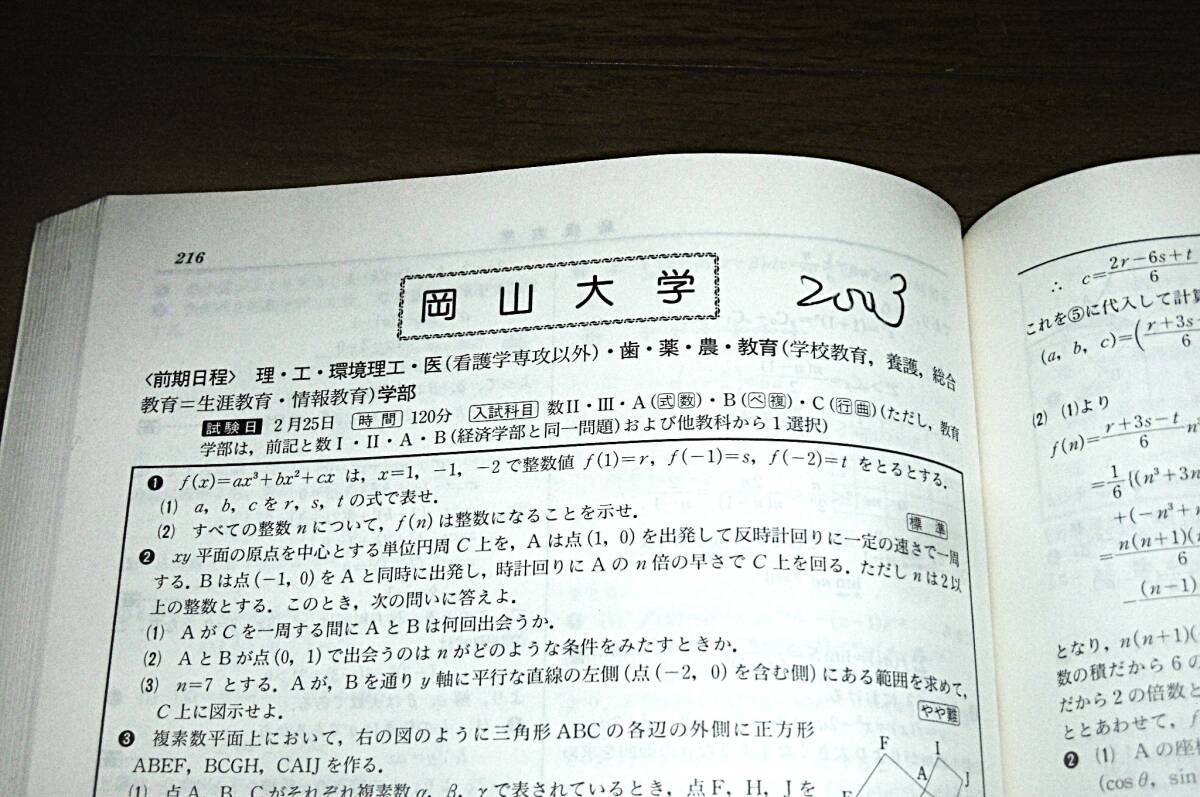 216
岡山大学
2003
〈前期日程〉 理・工・環境理工・医(看護学専攻以外)・歯・薬・農・教育(学校教育，養護，総合
教育＝生涯教育・情報教育)学部
試験日 2月25日 時間 120分 入試科目 数II・III・A(式数)・B(ベ複)・C(行曲)(ただし，教育
学部は，前記と数I・II・A・B(経済学部と同一問題)および他教科から1選択)
❶ f(x)=ax³+bx²+cx は，x=1，-1，-2で整数値 f(1)=r，f(-1)=s，f(-2)=t をとるとする．
(1) a，b，cをr，s，tの式で表せ．
(2) すべての整数nについて，f(n)は整数になることを示せ．
標準
❷ xy平面の原点を中心とする単位円周C上を，Aは点(1，0)を出発して反時計回りに一定の速さで一周
する．Bは点(-1，0)をAと同時に出発し，時計回りにAのn倍の早さでC上を回る．ただしnは2以
上の整数とする．このとき，次の問いに答えよ．
(1) AがCを一周する間にAとBは何回出会うか．
(2) AとBが点(0，1)で出会うのはnがどのような条件をみたすときか．
(3) n=7とする．Aが，Bを通りy軸に平行な直線の左側(点(-2，0)を含む側)にある範囲を求めて，
C上に図示せよ．
やや難
❸ 複素数平面上において，右の図のように三角形ABCの各辺の外側に正方形
ABEF，BCGH，CAIJを作る．
(1) 点A，B，Cがそれぞれ複素数α，β，γで表されているとき，点F，H，Jを
F
I
A
J
E
∴ c=(2r-6s+t)/6
これを⑤に代入して計算
(a，b，c)=(r+3s-
6
(2) (1)より
f(n)=(r+3s-t)/6 n³
=1/6{(n³+3n
+(-n³+
=n(n+1)(
6
-(n-1)
となり，n(n+1)(
数の積だから6の
だから2の倍数と
ととあわせて，f
❷ (1) Aの座標
(cosθ，sin